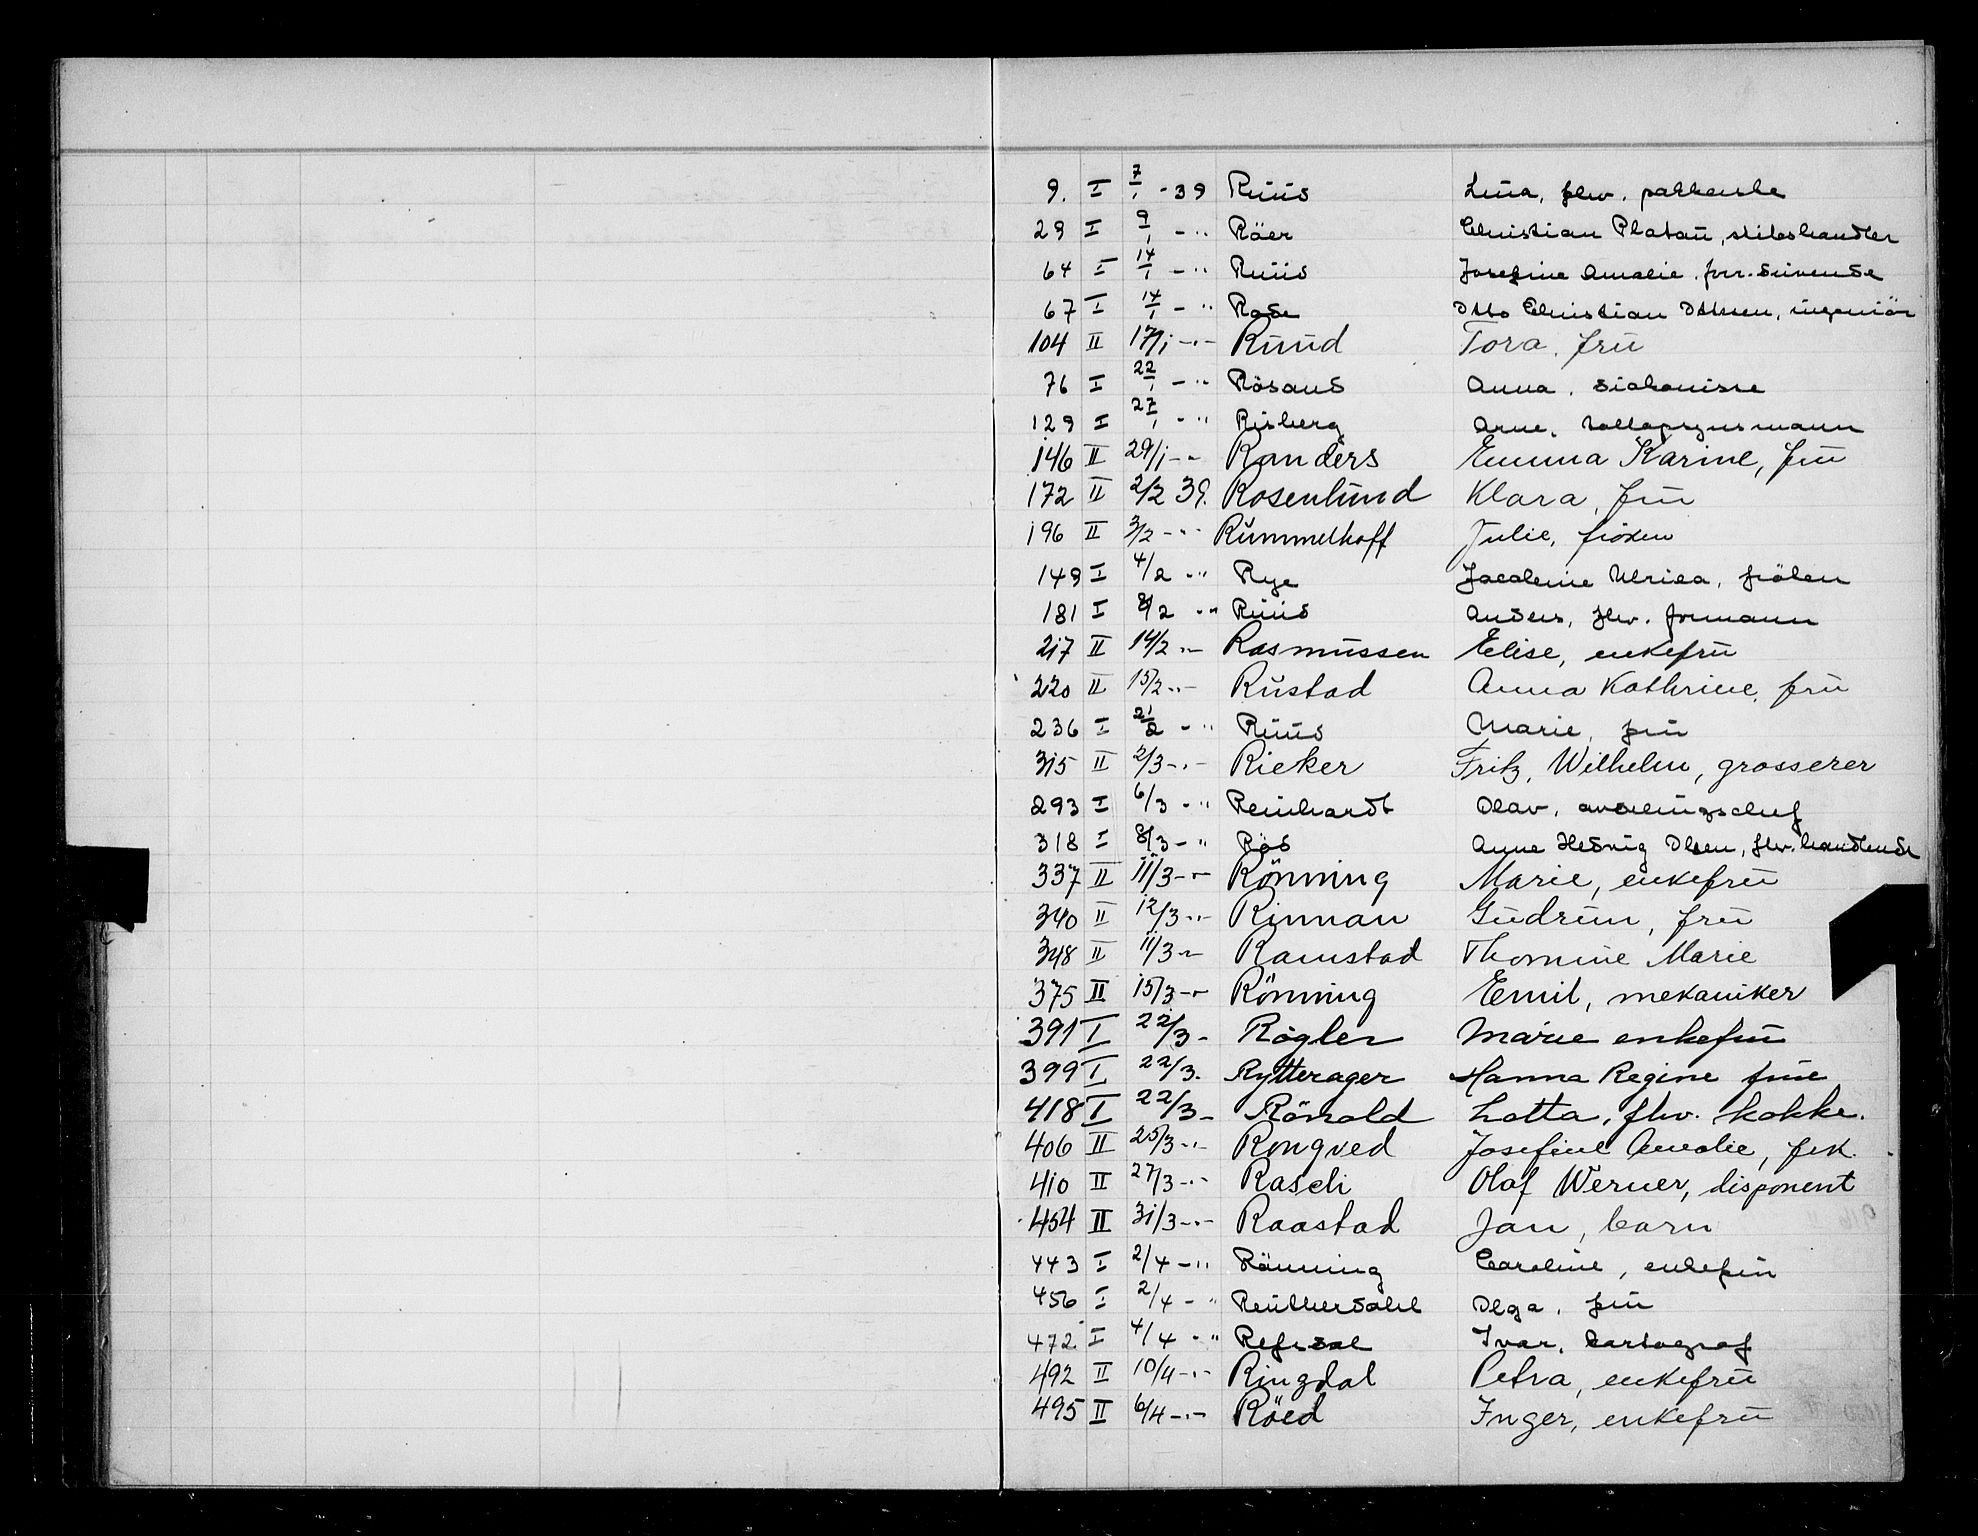 9. I 7/1 -39 Ruud Lina, fhv. pakkerske
29 I 9/1 - " Röer Christian Platou, skibshandler
64 I 14/1 - " Ruud Josefine Amalie, forr. drivende
67 I 14/1 - " Rode Otto Christian Ottesen, ingeniör
104 II 17/1 -"- Ruud Tora, fru
76 I 22/1 - " Rösand Anna, diakonisse
129 I 27/1 - " Risberg Arne, tolloppsynsmann
146 II 29/1 -- Randers Emma Karine, fru
172 II 2/2 39. Rosenlund Klara, fru
196 II 3/2 -" Rummelhoff Julie, fröken
149 I 4/2 -" Rye Jacobine Ulrica, fröken
181 I 8/2 -" Ruud Anders, fhv. formann
217 II 14/2 "- Rasmussen Elise, enkefru
220 II 15/2 -"- Rustad Anna Kathrine, fru
236 I 21/2 - " Ruud Marie, fru
315 II 2/3 -"- Rieker Fritz, Wilhelm, grosserer
293 I 6/3 - " Reinhardt Olav, avdelingschef
318 I 8/3 - " Röd Anne Hedvig Olsen, fhv. handlende
337 II 11/3 -"- Rönning Marie, enkefru
340 II 12/3 -"- Rinnan Gudrun, fru
348 II 11/3 "- Ramstad Thomine Marie
375 II 15/3 -"- Rönning Emil, mekaniker
391 I 22/3 - Rögler Marie enkefru
399 I 22/3. Rytterager Hanna Regine frue
418 I 22/3 - Rönold Lotta, fhv. kokke.
406 II 25/3 -"- Rongved Josefine Amalie, frk.
410 II 27/3 -"- Rasch Olaf Werner, disponent
454 II 31/3 -"- Raastad Jan, barn
443 I 2/4 - " Rönning Caroline, enkefru
456 I 2/4 - " Reuthersdahl Olga, fru
472 I 4/4 - " Refsdal Ivar, kartograf
492 II 10/4 -"- Ringdal Petra, enkefru
495 II 6/4 -"- Röed Inger, enkefru